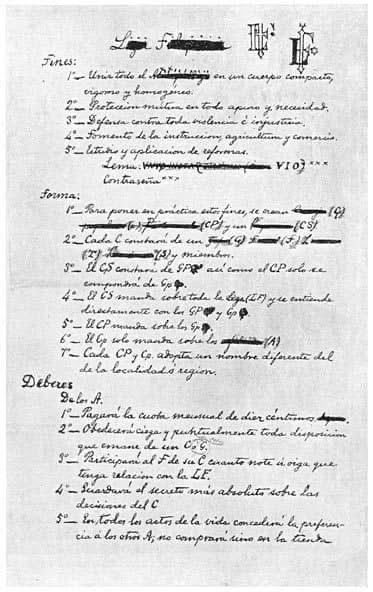 Liga Filipina
LF LF
Fines:
1º_ Unir todo el en un cuerpo compacto,
vigoroso y homogéneo.
2º_ Proteccion mútua en todo apuro y necesidad.
3º_ Defensa contra toda violencia é injusticia.
4º_ Fomento de la instruccion, agricultura y comercio.
5º_ Estudio y aplicacion de reformas.
Lema: VIO7 ***
Contraseña ***
Forma:
1º_ Para poner en práctica estos fines, se crean (G)
(CP) y un (CS)
2º_ Cada C constará de un (G) (F)
(T) (S) y miembros.
3º_ El CS constará de GP así como el CP solo se
compondrá de Gp.
4º_ El CS manda sobre toda la Liga (LF) y se entiende
directamente con los GP y Gp.
5º_ El CP manda sobre los Gp.
6º_ El Gp solo manda sobre los (A)
7º_ Cada CP y Cp. adopta un nombre diferente del
de la localidad ó region.
Deberes
De los A.
1º_ Pagará la cuota mensual de diez céntimos
2º_ Obedecerá ciega y puntualmente toda disposicion
que emane de un C ó G.
3º_ Participará al F de su C cuanto note ú oiga que
tenga relacion con la LF.
4º_ Guardará el secreto más absoluto sobre las
decisiones del C
5º_ En todos los actos de la vida concederá la preferen-
cia á los otros A; no comprará sino en la tienda